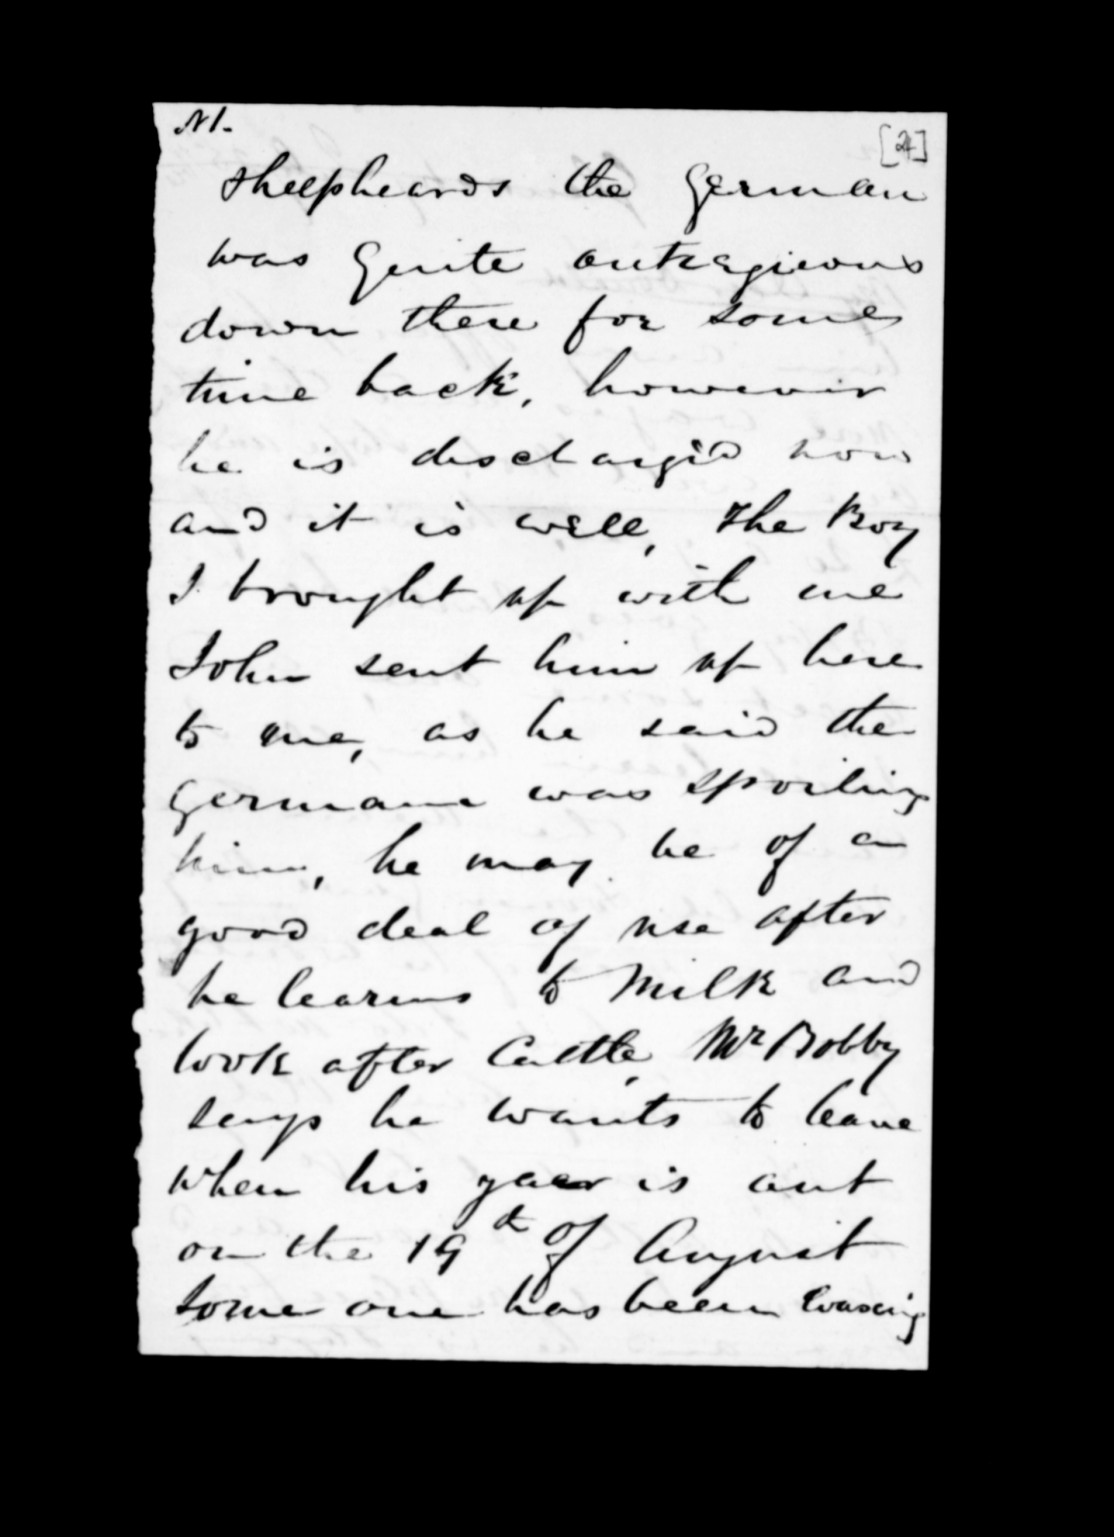 N1.
[2]
Sheepheards the German
was Quite outragieous
down there for some
time back, however
he is dischargd now
and it is well, The Boy
I brought up with me
John sent him up here
to me, as he said the
German was spoiling
him, he may be of a
good deal of use after
he learns to Milk and
look after Cattle, Mr Bobby
says he wants to leave
when his year is out
on the 19th of August
some one has been